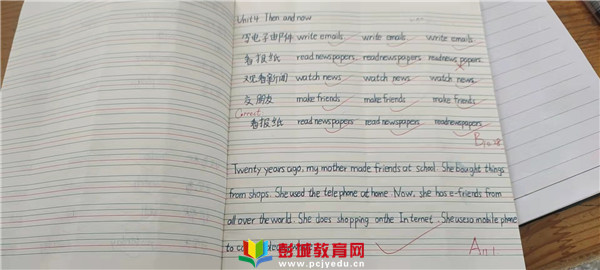 Unit 4 Then and now
写电子邮件 write emails write emails write emails
看报纸 read newspapers read newspapers read news papers
观看新闻 watch news watch news watch news
交朋友 make friends make friends make friends
Correct
看报纸 read newspapers read newspapers read newspapers
Twenty years ago, my mother made friends at school. She bought things
from shops. She used the telephone at home. Now, she has e-friends from
all over the world. She does shopping on the Internet. She uses a mobile phone
to
彭城教育网
www.pcjyedu.cn